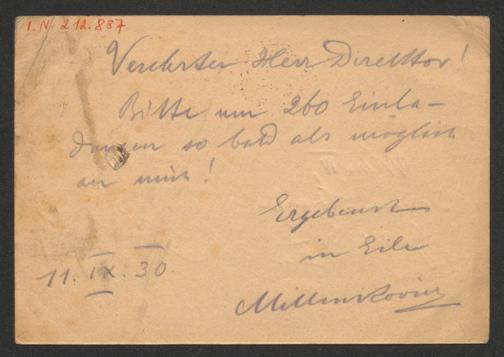 I. N. 212.887
Verehrter Herr Direktor!
Bitte um 260 Einla-
dungen so bald als möglich
an mich!
Ergebenst
in Eile
11. IX. 30.